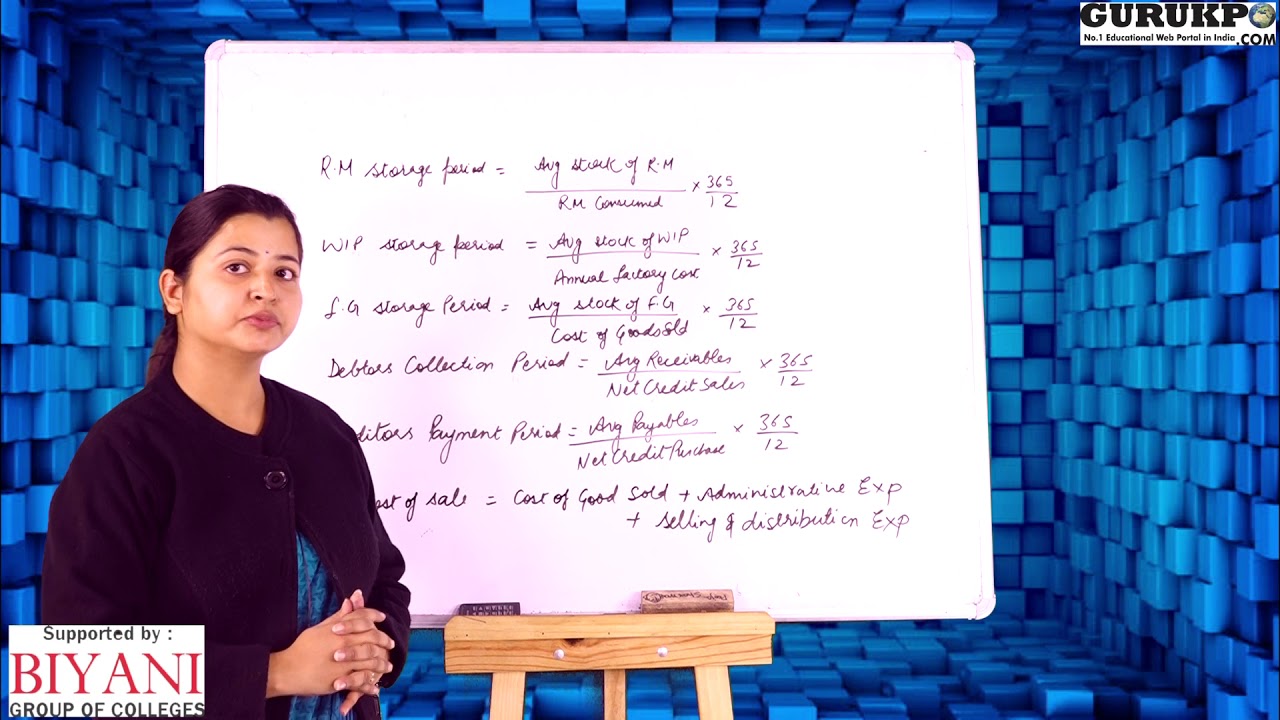 GURUKPO
No.1 Educational Web Portal in India .COM
R.M storage period = Avg stock of R.M / RM Consumed × 365/12
WIP storage period = Avg stock of WIP / Annual factory cost × 365/12
f.G storage Period = Avg stock of F.G / Cost of Goods old × 365/12
Debtors Collection Period = Avg Receivables / Net Credit Sales × 365/12
ditors Payment Period = Avg Payables / Net Credit Purchase × 365/12
ost of sale = Cost of Good Sold + Administrative Exp
+ selling & distribution Exp
Supported by :
BIYANI
GROUP OF COLLEGES